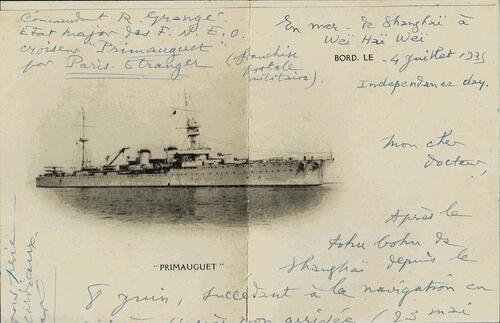 Commandant R. Grangé.
Etat major des F. N. E. O.
croiseur "Primauguet"
par Paris. Etranger (franchise
postale
militaire)
En mer. de Shanghaï à
Weï Haï Weï
BORD, LE 4 Juillet 1935
Independence day.
Mon cher
docteur,
Après le
tohu bohu de
Shanghaï depuis le
"PRIMAUGUET"
8 juin, succédant à la navigation en
mon arrivée (23 mai